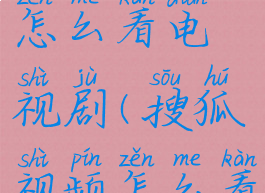 zěn me kàn diàn
怎么看电
shì jù sōu hú
视剧(搜狐
shì pín zěn me kàn
视频怎么看